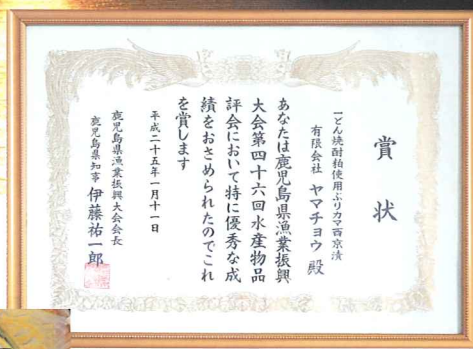 賞状
一どん焼酎粕使用ぶりカマ西京漬
有限会社 ヤマチョウ 殿
あなたは鹿児島県漁業振興
大会第四十六回水産物品
評会において特に優秀な成
績をおさめられたのでこれ
を賞します
平成二十五年一月十一日
鹿児島県漁業振興大会会長
鹿児島県知事 伊藤祐一郎